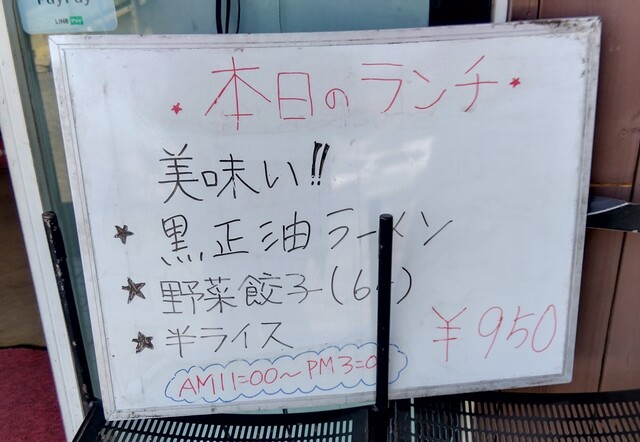 PayPay
LINE Pay
本日のランチ
美味い!!
★ 黒正油ラーメン
★ 野菜餃子(6ヶ)
★ 半ライス
¥950
AM11=00～PM3=0